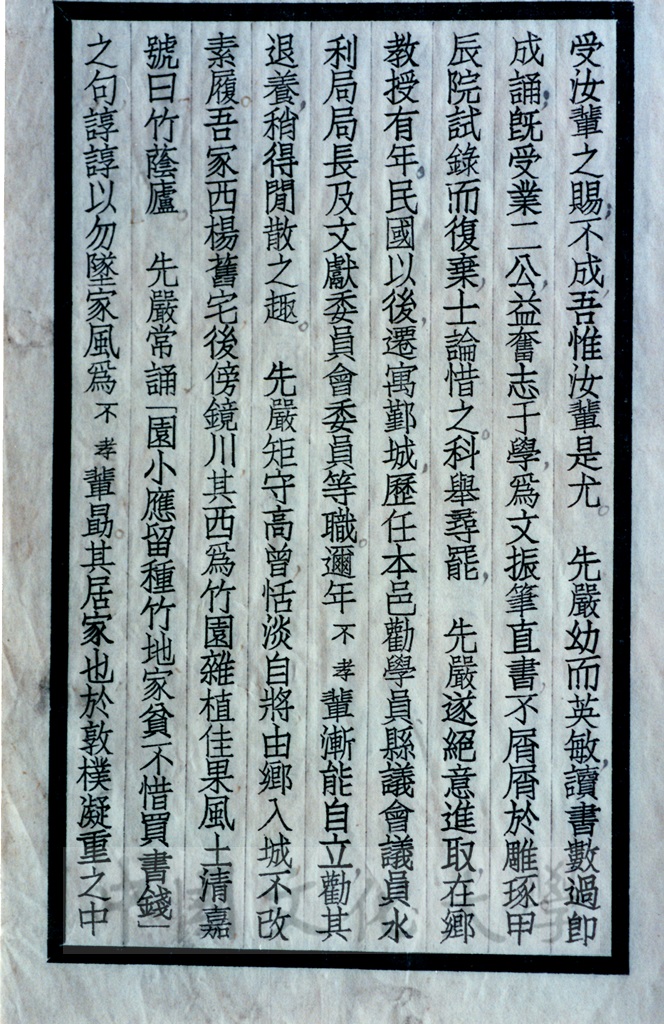 受汝輩之賜不成吾惟汝輩是尤　先嚴幼而英敏讀書數過卽
成誦旣受業二公益奮志于學爲文振筆直書不屑屑於雕琢甲
辰院試錄而復棄士論惜之科舉尋罷　先嚴遂絕意進取在鄉
教授有年民國以後遷寓鄞城歷任本邑勸學員縣議會議員水
利局局長及文獻委員會委員等職邇年不孝輩漸能自立勸其
退養稍得閒散之趣　先嚴矩守高曾恬淡自將由鄉入城不改
素履吾家西楊舊宅後傍鏡川其西爲竹園雜植佳果風土清嘉
號曰竹蔭廬　先嚴常誦「園小應留種竹地家貧不惜買書錢」
之句諄諄以勿墜家風爲不孝輩勗其居家也於敦樸凝重之中